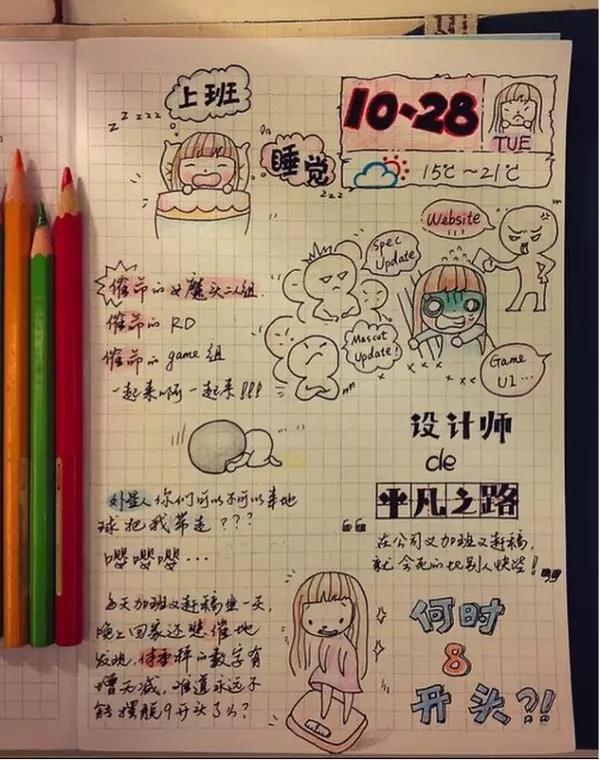 上班
z z zz z
睡觉
zzz
10·28
TUE
15℃~21℃
Website
Spec
Update
Mascot
Update!
Game
UI...
催命的女魔头二人组.
催命的 RD
催命的 game 组
一起来啊一起来!!!
设计师
de
平凡之路
在公司又加班又赶稿,
就会死的比别人快些!
外星人你们可以不可以来地
球把我带走???
嘤嘤嘤...
每天加班又赶稿坐一天,
晚上回家还悲催地
发现,体重秤的数字有
增无减,难道永远不
能摆脱9开头了么?
何时
8
开头?!